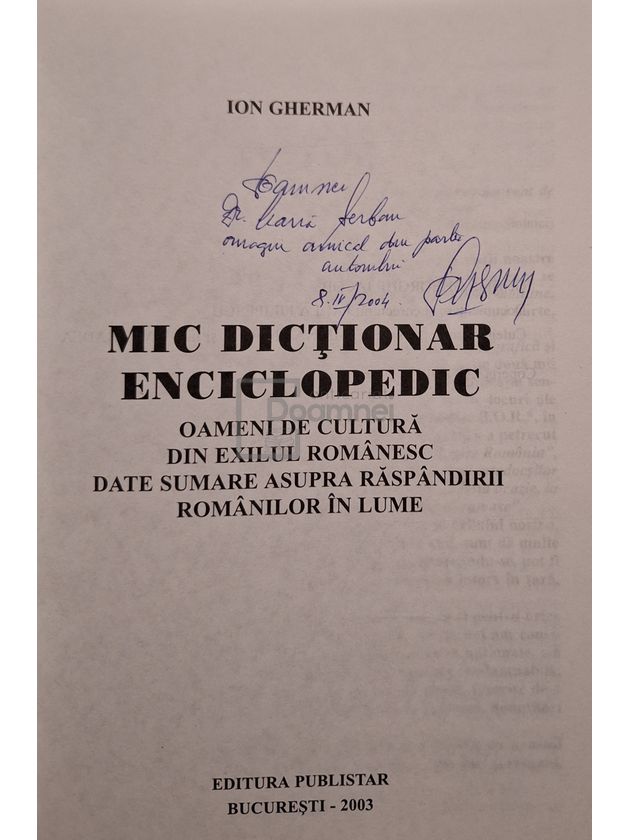 ION GHERMAN
Doamnei
Dr. Maria Șerban
omagiu amical din partea
autorului
8.IV/2004.
MIC DICŢIONAR
ENCICLOPEDIC
Doamnei
OAMENI DE CULTURĂ
DIN EXILUL ROMÂNESC
DATE SUMARE ASUPRA RĂSPÂNDIRII
ROMÂNILOR ÎN LUME
EDITURA PUBLISTAR
BUCUREŞTI - 2003